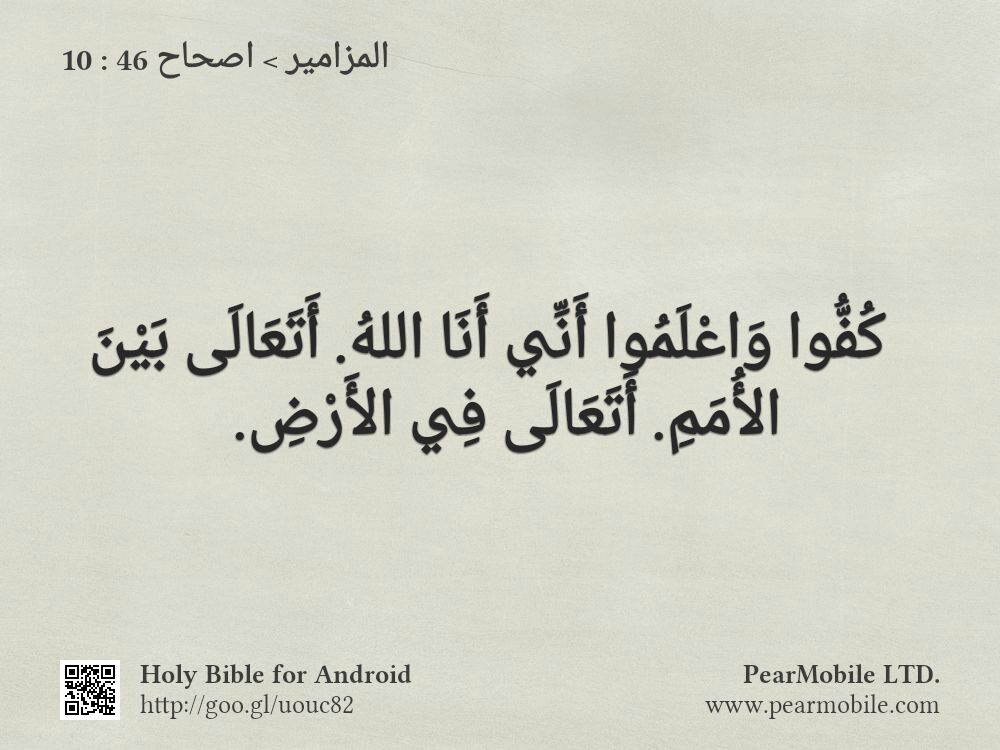 المزامير > اصحاح 46 : 10
كُفُّوا وَاعْلَمُوا أَنِّي أَنَا اللهُ. أَتَعَالَى بَيْنَ
الأُمَمِ. أَتَعَالَى فِي الأَرْضِ.
Holy Bible for Android
http://goo.gl/uouc82
PearMobile LTD.
www.pearmobile.com